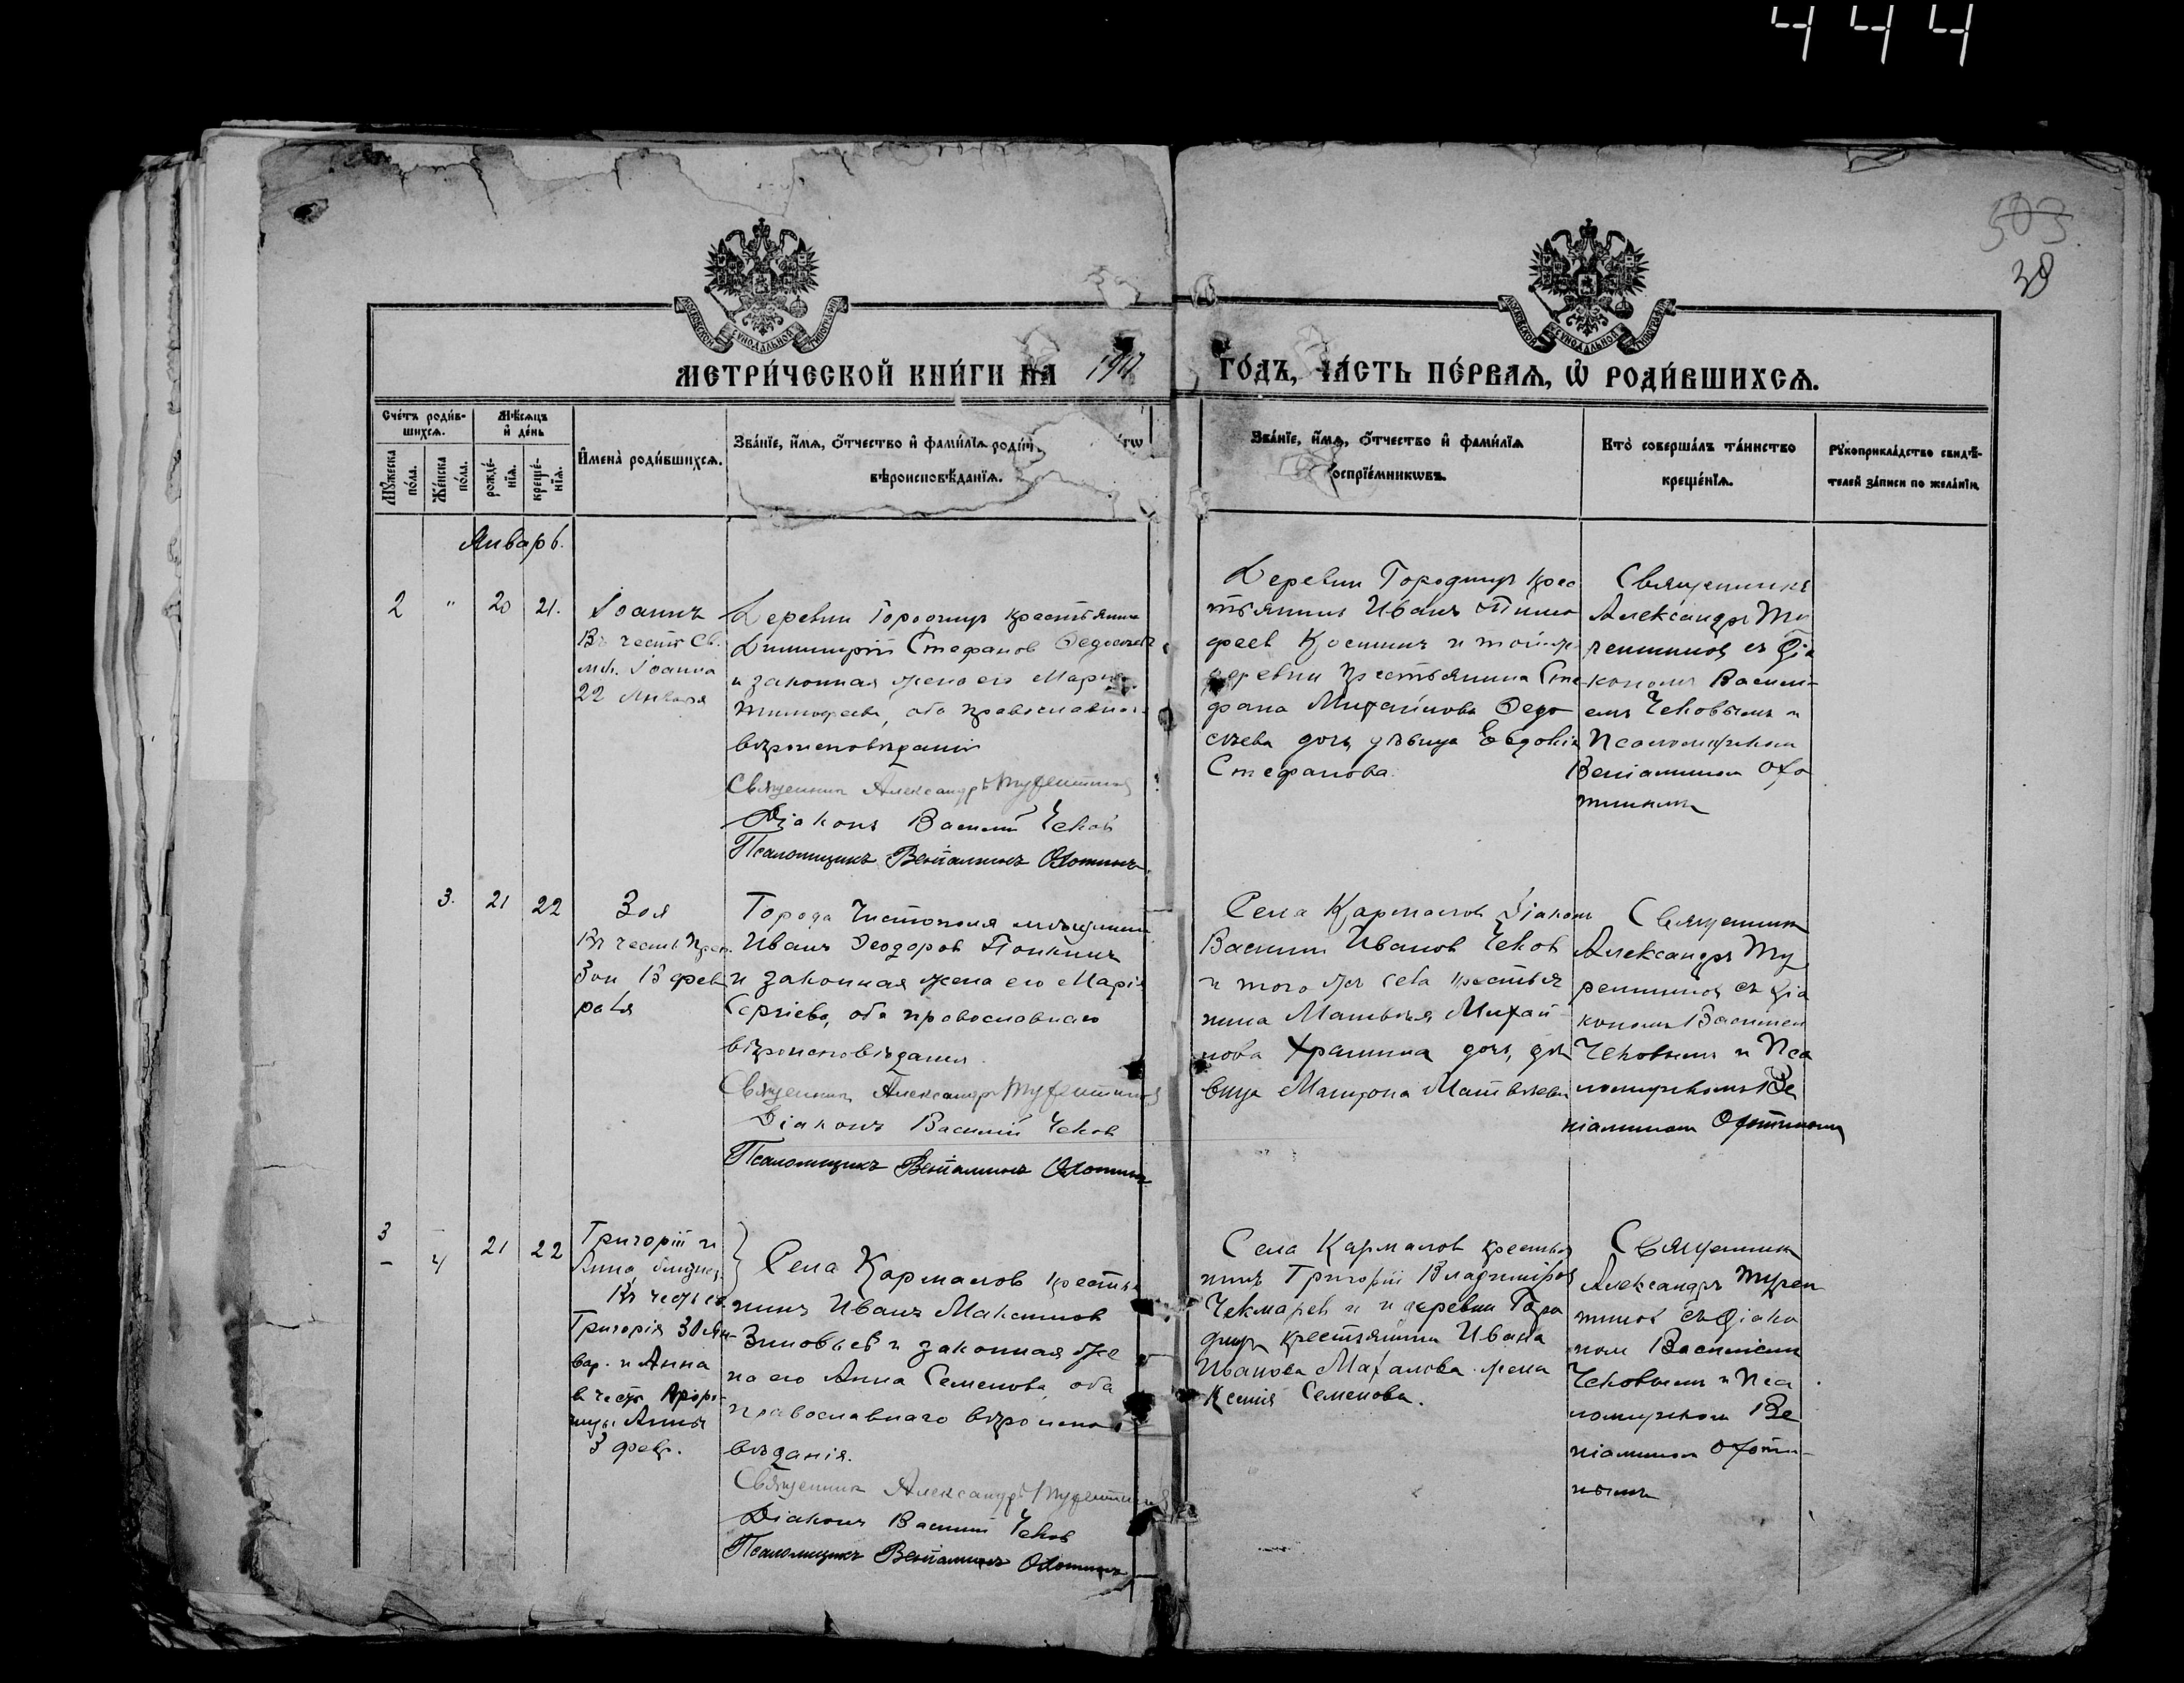 444
503
38
МОСКОВСКОЙ СѴНОДАЛЬНОЙ ТИПОГРАФІИ
МОСКОВСКОЙ СѴНОДАЛЬНОЙ ТИПОГРАФІИ
МЕТРИ́ЧЕСКОЙ КНИ́ГИ НА
ГО́ДЪ, ЧА́СТЬ ПЕ́РВАѦ, Ѽ РОДИ́ВШИХСѦ.
Сче́тъ роди́в-
шихсѧ.
Мꙋ́жеска
по́ла.
Же́нска
по́ла.
Мѣ́сѧцъ
и҆ де́нь
рожде́-
нїѧ.
креще́-
нїѧ.
И҆мена̀ роди́вшихсѧ.
Зва́нїе, и҆́мѧ, ѻ҆́тчество и҆ фами́лїѧ
вѣроисповѣ́данїѧ.
Зва́нїе, и҆́мѧ, ѻ҆́тчество и҆ фами́лїѧ
оспрїе́мникѡвъ.
Кто̀ соверша́лъ та́инство
креще́нїѧ.
Рꙋкоприкла́дство свидѣ́-
телей за́писи по жела́нїю.
Январь.
2 " 20 21.
Іоаннъ
Въ честь Св.
мч. Іоанна
22 Января
Деревни Городищъ крестьянинъ
Димитрій Стефанов Федосѣевъ
и законная жена его Марія
Тимофеева, оба православнаго
вѣроисповѣданія
Священникъ Александръ Турентинов
Діаконъ Василій Чеков
Псаломщикъ Веніаминъ Охотинъ
Деревни Городищъ крес
тьянинъ Иванъ Тимо
феев Костинъ и той-же
деревни крестьянина Сте
фана Михайлова Федо
сѣева дочь дѣвица Евдокія
Стефанова.
Священникъ
Александръ Ту
рентинов съ діа
кономъ Василі-
емъ Чековымъ и
Псаломщиком
Веніамином Охо
тинымъ
3. 21 22
Зоя
Въ честь Преп.
Зои 13 фев
раля
Города Чистополя мѣщанинъ
Иванъ Феодоров Понкинъ
и законная жена его Марія
Сергіева, оба православнаго
вѣроисповѣданія.
Священник Александръ Турентинов
Діаконъ Василій Чеков
Псаломщикъ Веніаминъ Охотинъ
Села Кармалов Діаконъ
Василій Иванов Чеков
и того же села крестья
нина Матвѣя Михай
лова Храмина дочь, дѣ
вица Матрона Матвѣева
Священник
Александръ Ту
рентинов съ діа
кономъ Василіем
Чековымъ и Пса
ломщикомъ Ве
ніамином Охотиным
3 –
– 4 21 22
Григорій и
Анна близнец.
Въ честь св.
Григорія 30 Ян-
вар. и Анна
в честь Проро-
чицы Анны
3 февр.
Села Кармалов крестья
нинъ Иванъ Максимов
Зиновьев и законная же
на его Анна Семенова, оба
православнаго вѣроиспо
вѣданія.
Священник Александръ Турентинов
Діаконъ Василій Чеков
Псаломщикъ Веніаминъ Охотинъ
Села Кармалов крестья
нинъ Григорій Владиміров
Чекмарев и и деревни Горо
дищъ крестьянина Ивана
Иванова Махалова жена
Ксенія Семенова.
Священник
Александръ Турен
тинов съ діако
ном Василіем
Чековымъ и Пса
ломщиком Ве
ніамином Охоти-
нымъ